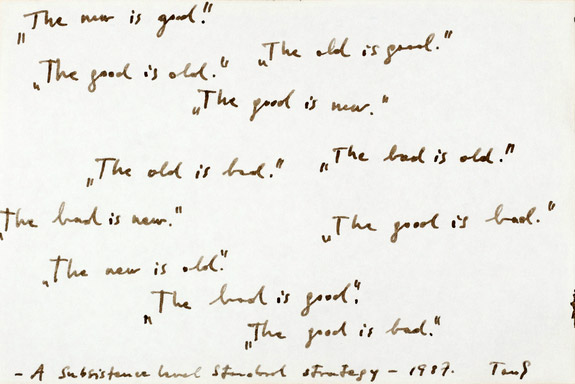 „The new is good."
„The old is good."
„The good is old."
„The good is new."
„The bad is old."
„The old is bad."
„The bad is new."
„The good is bad."
„The new is old."
„The bad is good."
„The good is bad."
- A subsistence level standard strategy - 1987.